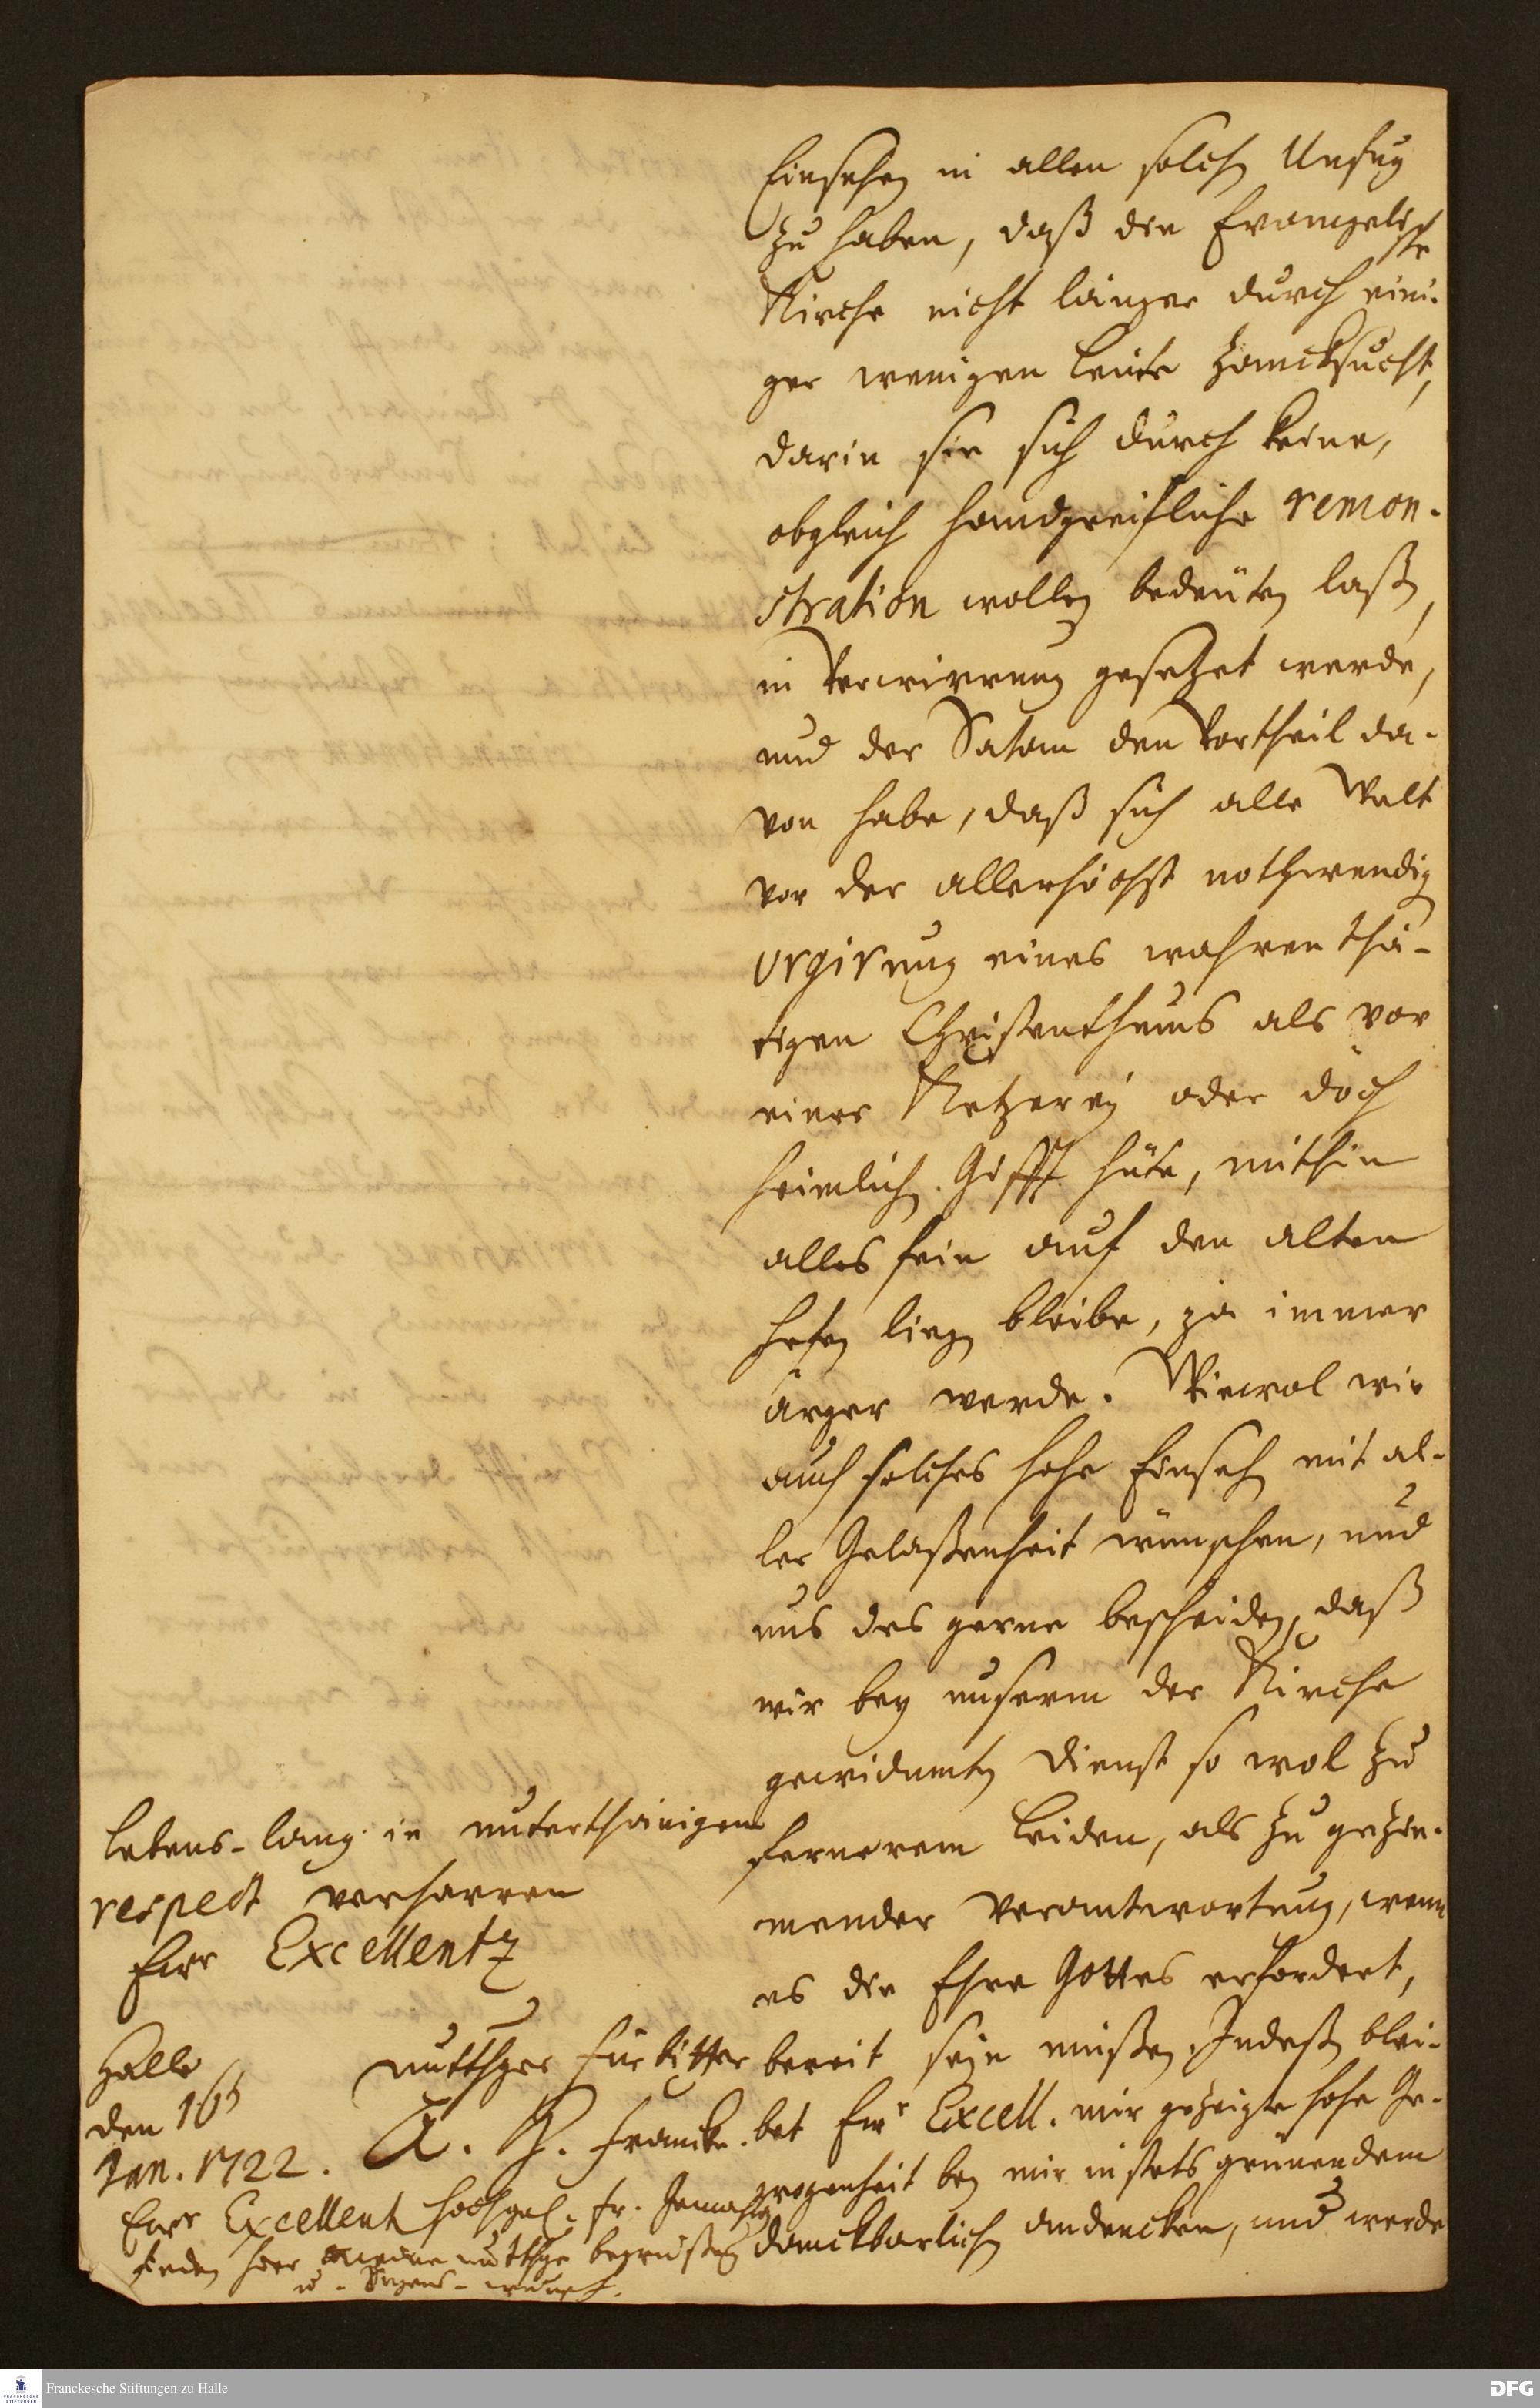 Einsehen in allen solchen Unfug
zu haben, daß die Evangelische
Kirche nicht länger durch eini-
ger wenigen Leute Zancksucht,
darin sie sich durch keine,
obgleich handgreifliche remon-
stration wollen bedeuten laßen,
in Verwirrung gesetzet werde,
und der Satan den Vortheil da-
von habe, daß sich alle Welt
vor der allerhöchst nothwendigen
Urgirung eines wahren thä-
tigen Christenthums als vor
einer Ketzerey oder doch
heimlichen Gifft hüte, mithin
alles fein auf den alten
Hefen liegen bleibe, ja immer
ärger werde. Wiewol wir
auch solches hohe Einsehen mit al-
ler Gelaßenheit wünschen, und
uns des gerne bescheiden, daß
wir bey unserm der Kirche
gewidmeten Dienst so wol zu
fernerem Leiden, als zu gezie-
mender Verantwortung, wenn
es die Ehre Gottes erfordert,
bereit seyn müßen. Indeßen blei-
bet Ewr Excell. mir gezeigte hohe Ge-
wogenheit bey mir in stets grünendem
danckbarlichen Andencken, und werde
Lebens-lang in unterthänigem
respect verharren
Ewr Excellentz
unterthger Fürbitter
A. H. Francke.
Halle
den 16
Jan. 1722.
Ewr Excellent hochgel. Fr. Gemahlin
finden hier meine unterthge begrüßung
u. Segens-wunsch.
Franckesche Stiftungen zu Halle
FRANCKESCHE STIFTUNGEN
DFG